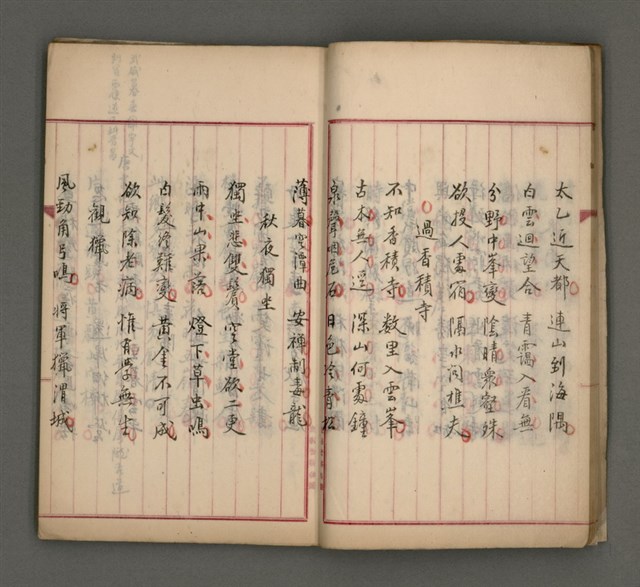 太乙近天都 連山到海隅
白雲迴望合 青靄入看無
分野中峯變 陰晴衆壑殊
欲投人處宿 隔水问樵夫
過香積寺
不知香積寺 数里入雲峯
古木無人逕 深山何處鐘
泉聲咽危石 日色冷青松
薄暮空潭曲 安禅制毒龍
秋夜獨坐
獨坐悲雙鬢 空堂欲二更
雨中山果落 燈下草虫鳴
白髮終難變 黄金不可成
欲知除老病 惟有學無生
觀獵
風勁角弓鳴 将軍獵渭城